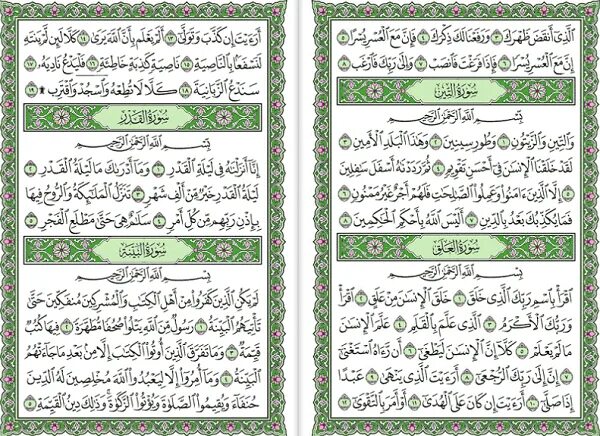 ٱلَّذِىٓ أَنقَضَ ظَهْرَكَ ٣ وَرَفَعْنَا لَكَ ذِكْرَكَ ٤ فَإِنَّ مَعَ ٱلْعُسْرِ يُسْرًا ٥
إِنَّ مَعَ ٱلْعُسْرِ يُسْرًا ٦ فَإِذَا فَرَغْتَ فَٱنصَبْ ٧ وَإِلَىٰ رَبِّكَ فَٱرْغَب ٨
سُورَةُ التِّينِ
بِسْمِ ٱللَّهِ ٱلرَّحْمَٰنِ ٱلرَّحِيمِ
وَٱلتِّينِ وَٱلزَّيْتُونِ ١ وَطُورِ سِينِينَ ٢ وَهَٰذَا ٱلْبَلَدِ ٱلْأَمِينِ ٣
لَقَدْ خَلَقْنَا ٱلْإِنسَٰنَ فِىٓ أَحْسَنِ تَقْوِيمٍ ٤ ثُمَّ رَدَدْنَٰهُ أَسْفَلَ سَٰفِلِينَ
٥ إِلَّا ٱلَّذِينَ ءَامَنُوا۟ وَعَمِلُوا۟ ٱلصَّٰلِحَٰتِ فَلَهُمْ أَجْرٌ غَيْرُ مَمْنُونٍ ٦
فَمَا يُكَذِّبُكَ بَعْدُ بِٱلدِّينِ ٧ أَلَيْسَ ٱللَّهُ بِأَحْكَمِ ٱلْحَٰكِمِينَ ٨
سُورَةُ العَلَقِ
بِسْمِ ٱللَّهِ ٱلرَّحْمَٰنِ ٱلرَّحِيمِ
ٱقْرَأْ بِٱسْمِ رَبِّكَ ٱلَّذِى خَلَقَ ١ خَلَقَ ٱلْإِنسَٰنَ مِنْ عَلَقٍ ٢ ٱقْرَأْ
وَرَبُّكَ ٱلْأَكْرَمُ ٣ ٱلَّذِى عَلَّمَ بِٱلْقَلَمِ ٤ عَلَّمَ ٱلْإِنسَٰنَ
مَا لَمْ يَعْلَمْ ٥ كَلَّآ إِنَّ ٱلْإِنسَٰنَ لَيَطْغَىٰٓ ٦ أَن رَّءَاهُ ٱسْتَغْنَىٰٓ
٧ إِنَّ إِلَىٰ رَبِّكَ ٱلرُّجْعَىٰٓ ٨ أَرَءَيْتَ ٱلَّذِى يَنْهَىٰ ٩ عَبْدًا
إِذَا صَلَّىٰٓ ١٠ أَرَءَيْتَ إِن كَانَ عَلَى ٱلْهُدَىٰٓ ١١ أَوْ أَمَرَ بِٱلتَّقْوَىٰٓ ١٢
أَرَءَيْتَ إِن كَذَّبَ وَتَوَلَّىٰٓ ١٣ أَلَمْ يَعْلَم بِأَنَّ ٱللَّهَ يَرَىٰ ١٤ كَلَّا لَئِن لَّمْ يَنتَهِ
لَنَسْفَعًۢا بِٱلنَّاصِيَةِ ١٥ نَاصِيَةٍ كَٰذِبَةٍ خَاطِئَةٍ ١٦ فَلْيَدْعُ نَادِيَهُۥ ١٧
سَنَدْعُ ٱلزَّبَانِيَةَ ١٨ كَلَّا لَا تُطِعْهُ وَٱسْجُدْ وَٱقْتَرِب ۩ ١٩
سُورَةُ القَدْرِ
بِسْمِ ٱللَّهِ ٱلرَّحْمَٰنِ ٱلرَّحِيمِ
إِنَّآ أَنزَلْنَٰهُ فِى لَيْلَةِ ٱلْقَدْرِ ١ وَمَآ أَدْرَىٰكَ مَا لَيْلَةُ ٱلْقَدْرِ ٢
لَيْلَةُ ٱلْقَدْرِ خَيْرٌ مِّنْ أَلْفِ شَهْرٍ ٣ تَنَزَّلُ ٱلْمَلَٰٓئِكَةُ وَٱلرُّوحُ فِيهَا
بِإِذْنِ رَبِّهِم مِّن كُلِّ أَمْرٍ ٤ سَلَٰمٌ هِىَ حَتَّىٰ مَطْلَعِ ٱلْفَجْرِ ٥
سُورَةُ البَيِّنَةِ
بِسْمِ ٱللَّهِ ٱلرَّحْمَٰنِ ٱلرَّحِيمِ
لَمْ يَكُنِ ٱلَّذِينَ كَفَرُوا۟ مِنْ أَهْلِ ٱلْكِتَٰبِ وَٱلْمُشْرِكِينَ مُنفَكِّينَ حَتَّىٰ
تَأْتِيَهُمُ ٱلْبَيِّنَةُ ١ رَسُولٌ مِّنَ ٱللَّهِ يَتْلُوا۟ صُحُفًا مُّطَهَّرَةً ٢ فِيهَا كُتُبٌ
قَيِّمَةٌ ٣ وَمَا تَفَرَّقَ ٱلَّذِينَ أُوتُوا۟ ٱلْكِتَٰبَ إِلَّا مِنۢ بَعْدِ مَا جَآءَتْهُمُ
ٱلْبَيِّنَةُ ٤ وَمَآ أُمِرُوٓا۟ إِلَّا لِيَعْبُدُوا۟ ٱللَّهَ مُخْلِصِينَ لَهُ ٱلدِّينَ
حُنَفَآءَ وَيُقِيمُوا۟ ٱلصَّلَوٰةَ وَيُؤْتُوا۟ ٱلزَّكَوٰةَ وَذَٰلِكَ دِينُ ٱلْقَيِّمَةِ ٥